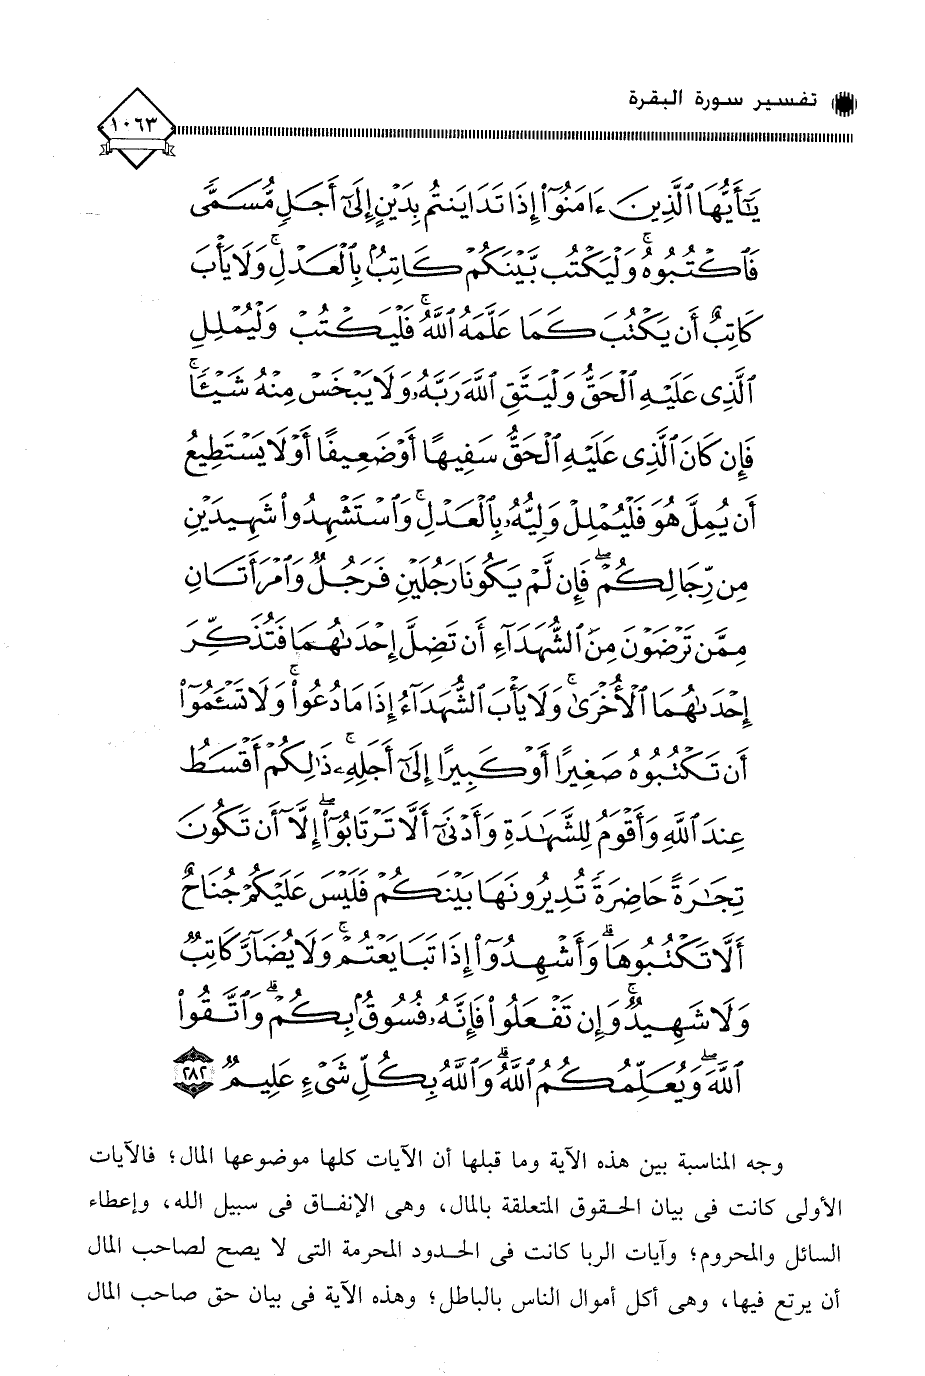 تفسير سورة البقرة
١٠٦٣
يَٰٓأَيُّهَا ٱلَّذِينَ ءَامَنُوٓا۟ إِذَا تَدَايَنتُم بِدَيْنٍ إِلَىٰٓ أَجَلٍ مُّسَمًّى
فَٱكْتُبُوهُ ۚ وَلْيَكْتُب بَّيْنَكُمْ كَاتِبٌۢ بِٱلْعَدْلِ ۚ وَلَا يَأْبَ
كَاتِبٌ أَن يَكْتُبَ كَمَا عَلَّمَهُ ٱللَّهُ ۚ فَلْيَكْتُبْ وَلْيُمْلِلِ
ٱلَّذِى عَلَيْهِ ٱلْحَقُّ وَلْيَتَّقِ ٱللَّهَ رَبَّهُۥ وَلَا يَبْخَسْ مِنْهُ شَيْـًٔا ۚ
فَإِن كَانَ ٱلَّذِى عَلَيْهِ ٱلْحَقُّ سَفِيهًا أَوْ ضَعِيفًا أَوْ لَا يَسْتَطِيعُ
أَن يُمِلَّ هُوَ فَلْيُمْلِلْ وَلِيُّهُۥ بِٱلْعَدْلِ ۚ وَٱسْتَشْهِدُوا۟ شَهِيدَيْنِ
مِن رِّجَالِكُمْ ۖ فَإِن لَّمْ يَكُونَا رَجُلَيْنِ فَرَجُلٌ وَٱمْرَأَتَانِ
مِمَّن تَرْضَوْنَ مِنَ ٱلشُّهَدَآءِ أَن تَضِلَّ إِحْدَىٰهُمَا فَتُذَكِّرَ
إِحْدَىٰهُمَا ٱلْأُخْرَىٰ ۚ وَلَا يَأْبَ ٱلشُّهَدَآءُ إِذَا مَا دُعُوا۟ ۚ وَلَا تَسْـَٔمُوٓا۟
أَن تَكْتُبُوهُ صَغِيرًا أَوْ كَبِيرًا إِلَىٰٓ أَجَلِهِۦ ۚ ذَٰلِكُمْ أَقْسَطُ
عِندَ ٱللَّهِ وَأَقْوَمُ لِلشَّهَٰدَةِ وَأَدْنَىٰٓ أَلَّا تَرْتَابُوٓا۟ ۖ إِلَّآ أَن تَكُونَ
تِجَٰرَةً حَاضِرَةً تُدِيرُونَهَا بَيْنَكُمْ فَلَيْسَ عَلَيْكُمْ جُنَاحٌ
أَلَّا تَكْتُبُوهَا ۗ وَأَشْهِدُوٓا۟ إِذَا تَبَايَعْتُمْ ۚ وَلَا يُضَآرَّ كَاتِبٌ
وَلَا شَهِيدٌ ۚ وَإِن تَفْعَلُوا۟ فَإِنَّهُۥ فُسُوقٌۢ بِكُمْ ۗ وَٱتَّقُوا۟
ٱللَّهَ ۖ وَيُعَلِّمُكُمُ ٱللَّهُ ۗ وَٱللَّهُ بِكُلِّ شَىْءٍ عَلِيمٌ ٢٨٢
وجه المناسبة بين هذه الآية وما قبلها أن الآيات كلها موضوعها المال؛ فالآيات
الأولى كانت فى بيان الحقوق المتعلقة بالمال، وهى الإنفاق فى سبيل الله، وإعطاء
السائل والمحروم؛ وآيات الربا كانت فى الحدود المحرمة التى لا يصح لصاحب المال
أن يرتع فيها، وهى أكل أموال الناس بالباطل؛ وهذه الآية فى بيان حق صاحب المال